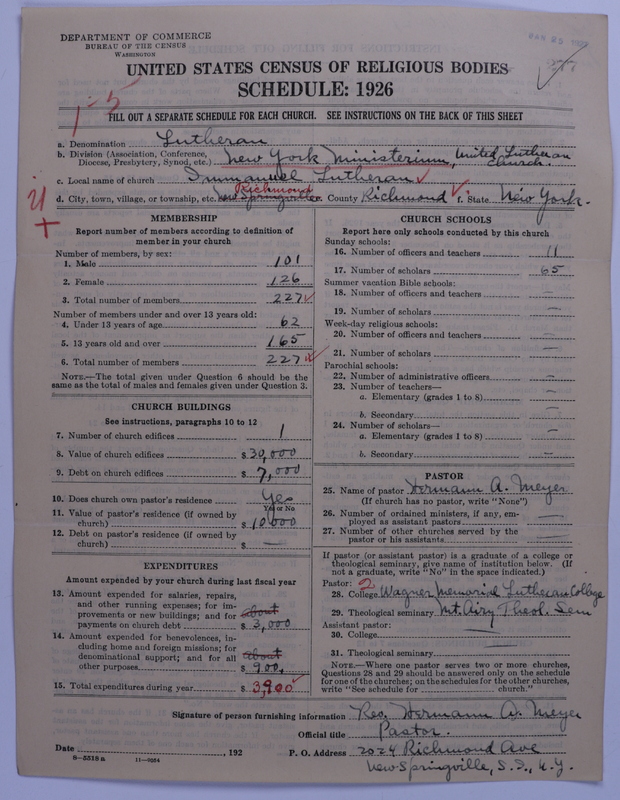 DEPARTMENT OF COMMERCE
BUREAU OF THE CENSUS
WASHINGTON
UNITED STATES CENSUS OF RELIGIOUS BODIES
SCHEDULE: 1926
1-5
FILL OUT A SEPARATE SCHEDULE FOR EACH CHURCH. SEE INSTRUCTIONS ON THE BACK OF THIS SHEET
a. Denomination Lutheran
b. Division (Association, Conference, Diocese, Presbytery, Synod, etc.) New York Ministerium, United Lutheran Church.
c. Local name of church Immanuel Lutheran
Richmond
d. City, town, village, or township, etc. New Springville. County Richmond f. State New York.
MEMBERSHIP
Report number of members according to definition of
member in your church
Number of members, by sex:
1. Male 101
2. Female 126
3. Total number of members 227
Number of members under and over 13 years old:
4. Under 13 years of age 62
5. 13 years old and over 165
6. Total number of members 227
NOTE.—The total given under Question 6 should be the
same as the total of males and females given under Question 3.
CHURCH BUILDINGS
See instructions, paragraphs 10 to 12
7. Number of church edifices 1
8. Value of church edifices $ 30,000
9. Debt on church edifices $ 7,000
10. Does church own pastor's residence Yes
Yes or No
11. Value of pastor's residence (if owned by
church) $ 10000
12. Debt on pastor's residence (if owned by
church) $ —
EXPENDITURES
Amount expended by your church during last fiscal year
13. Amount expended for salaries, repairs,
and other running expenses; for im-
provements or new buildings; and for about
payments on church debt $ 3,000
14. Amount expended for benevolences, in-
cluding home and foreign missions; for
denominational support; and for all about
other purposes $ 900.
15. Total expenditures during year $ 3,900
CHURCH SCHOOLS
Report here only schools conducted by this church
Sunday schools:
16. Number of officers and teachers 11
17. Number of scholars 65
Summer vacation Bible schools:
18. Number of officers and teachers —
19. Number of scholars —
Week-day religious schools:
20. Number of officers and teachers —
21. Number of scholars —
Parochial schools:
22. Number of administrative officers —
23. Number of teachers—
a. Elementary (grades 1 to 8) —
b. Secondary —
24. Number of scholars—
a. Elementary (grades 1 to 8) —
b. Secondary —
PASTOR
25. Name of pastor Hermann A. Meyer
(If church has no pastor, write "None")
26. Number of ordained ministers, if any, em-
ployed as assistant pastors —
27. Number of other churches served by the
pastor or his assistants —
If pastor (or assistant pastor) is a graduate of a college or
theological seminary, give name of institution below. (If
not a graduate, write "No" in the space indicated.)
Pastor: 2
28. College Wagner Memorial Lutheran College
29. Theological seminary Mt. Airy Theol. Sem
Assistant pastor:
30. College —
31. Theological seminary —
NOTE.—Where one pastor serves two or more churches,
Questions 28 and 29 should be answered only on the schedule
for one of the churches; on the schedules for the other churches,
write "See schedule for church."
Signature of person furnishing information Rev. Hermann A. Meyer
Official title Pastor.
Date , 192 P. O. Address 2024 Richmond Ave
8-5318 a 11-9354 New Springville, S.I., N.Y.